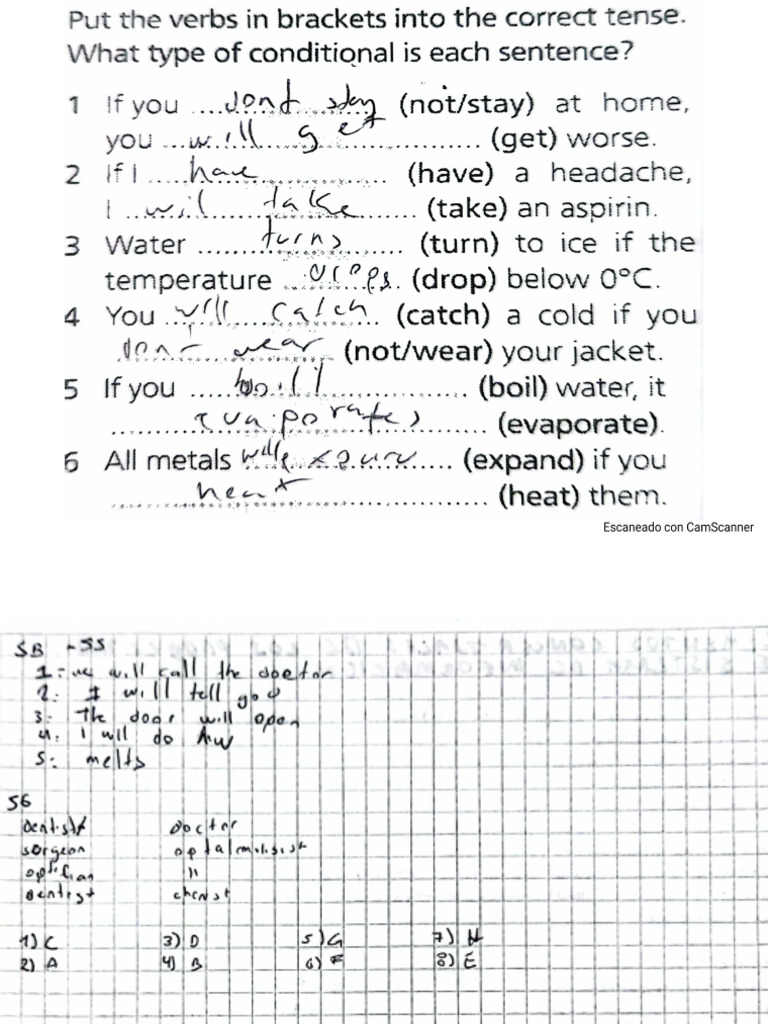 Put the verbs in brackets into the correct tense.
What type of conditional is each sentence?
1 If you ....dont stay (not/stay) at home,
you ...will get................ (get) worse.
2 If I ....have................ (have) a headache,
I ...wil take....... (take) an aspirin.
3 Water .........turns......... (turn) to ice if the
temperature ...drops. (drop) below 0°C.
4 You ...will catch... (catch) a cold if you
dont wear (not/wear) your jacket.
5 If you ......boil................ (boil) water, it
............evaporates............ (evaporate).
6 All metals will (expand) if you
............heat........................ (heat) them.
Escaneado con CamScanner
SB - 55
1: we will call the doctor
2: I will tell you
3: The door will open
4: I will do HW
5: melts
56
dentist doctor
sorgeon optalmologist
optician "
dentist
1) C 3) D 5) G 7) H
2) A 4) B 6) F 8) E